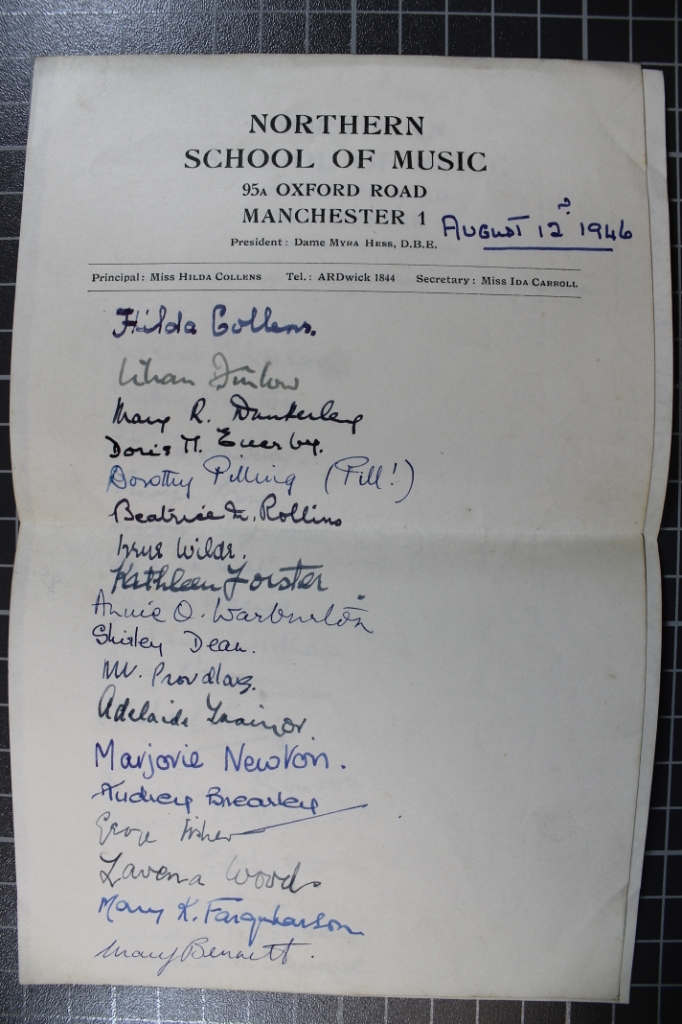 NORTHERN
SCHOOL OF MUSIC
95A OXFORD ROAD
MANCHESTER 1
August 12 1946
President: Dame Myra Hess, D.B.E.
Principal: Miss Hilda Collens Tel.: ARDwick 1844 Secretary: Miss Ida Carroll
Hilda Collens.
Lilian
Mary R. Dunkerley
Doris M. Euerby.
Dorothy Pilling (Pill!)
Beatrice Rollins
Irene Wilde.
Kathleen Forster
Annie O. Warburton
Shirley Dean.
Adelaide Trainor.
Marjorie Newton.
Audrey Brearley
George Fisher
Lavena Woods
Mary K. Farquharson
Mary Bennett.